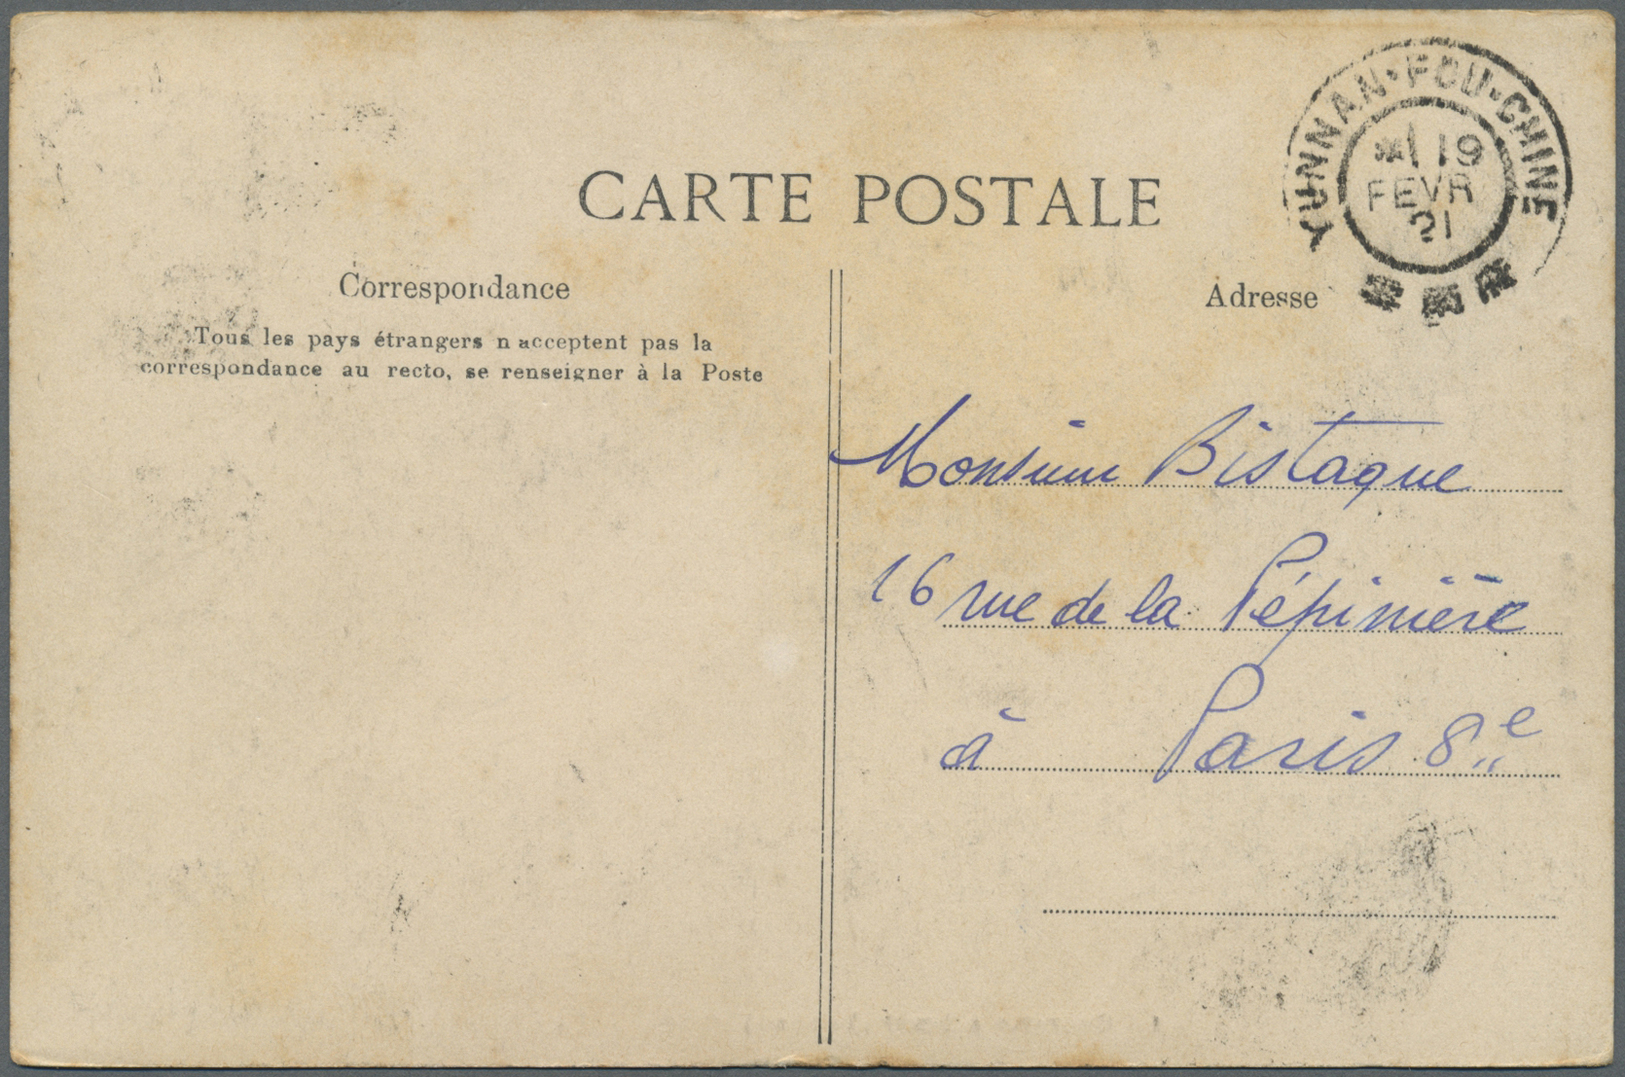 CARTE POSTALE
YUNNAN·FOU·CHINE
19
FEVR
21
Correspondance
Adresse
Tous les pays étrangers n acceptent pas la
correspondance au recto, se renseigner à la Poste
Monsieur Bistaque
16 rue de la Pépinière
à Paris 8e